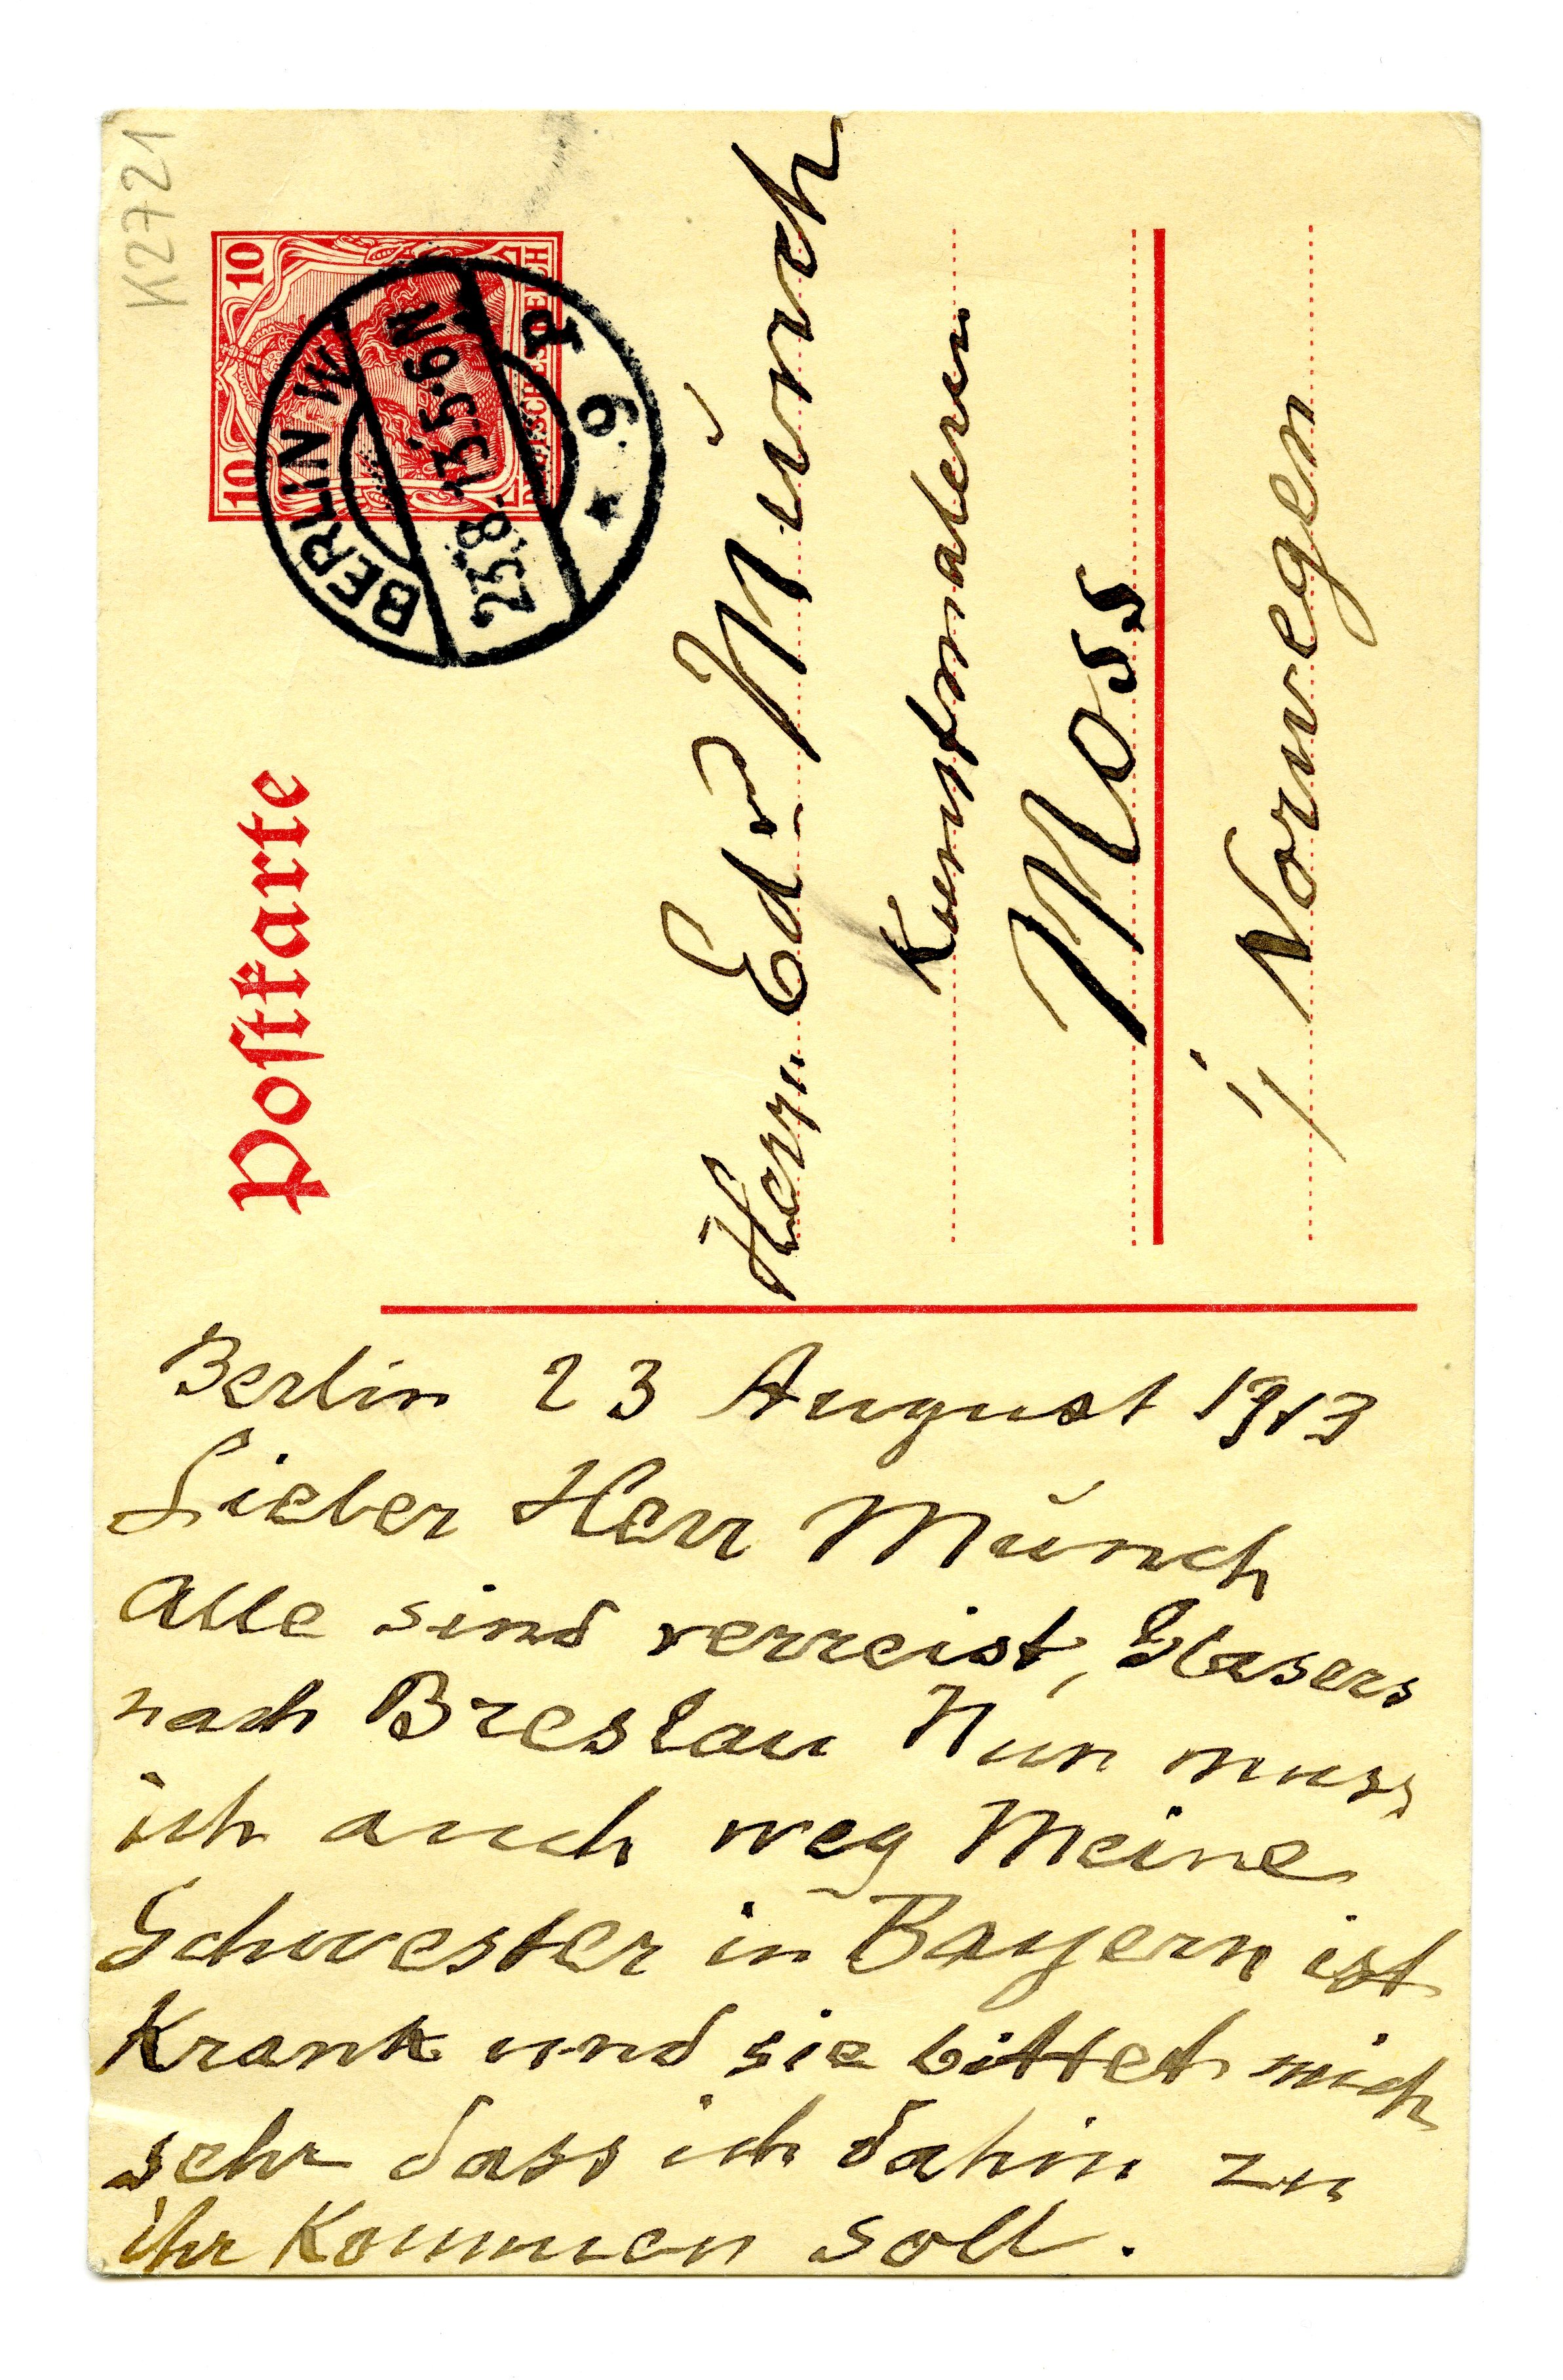 K2721
Postkarte
10 10
DEUTSCHES REICH
BERLIN W
23.8.13.5-6N
* 9 P
Herrn Edv Münch
Kunstmalern
Moss
i/ Norwegen
Berlin 23 August 1913
Lieber Herr Münch
Alle sind verreist, Glasers
nach Breslau Nun muss
ich auch weg Meine
Schwester in Bayern ist
Krank und sie bittet mich
sehr dass ich dahin zu
ihr Kommen soll.